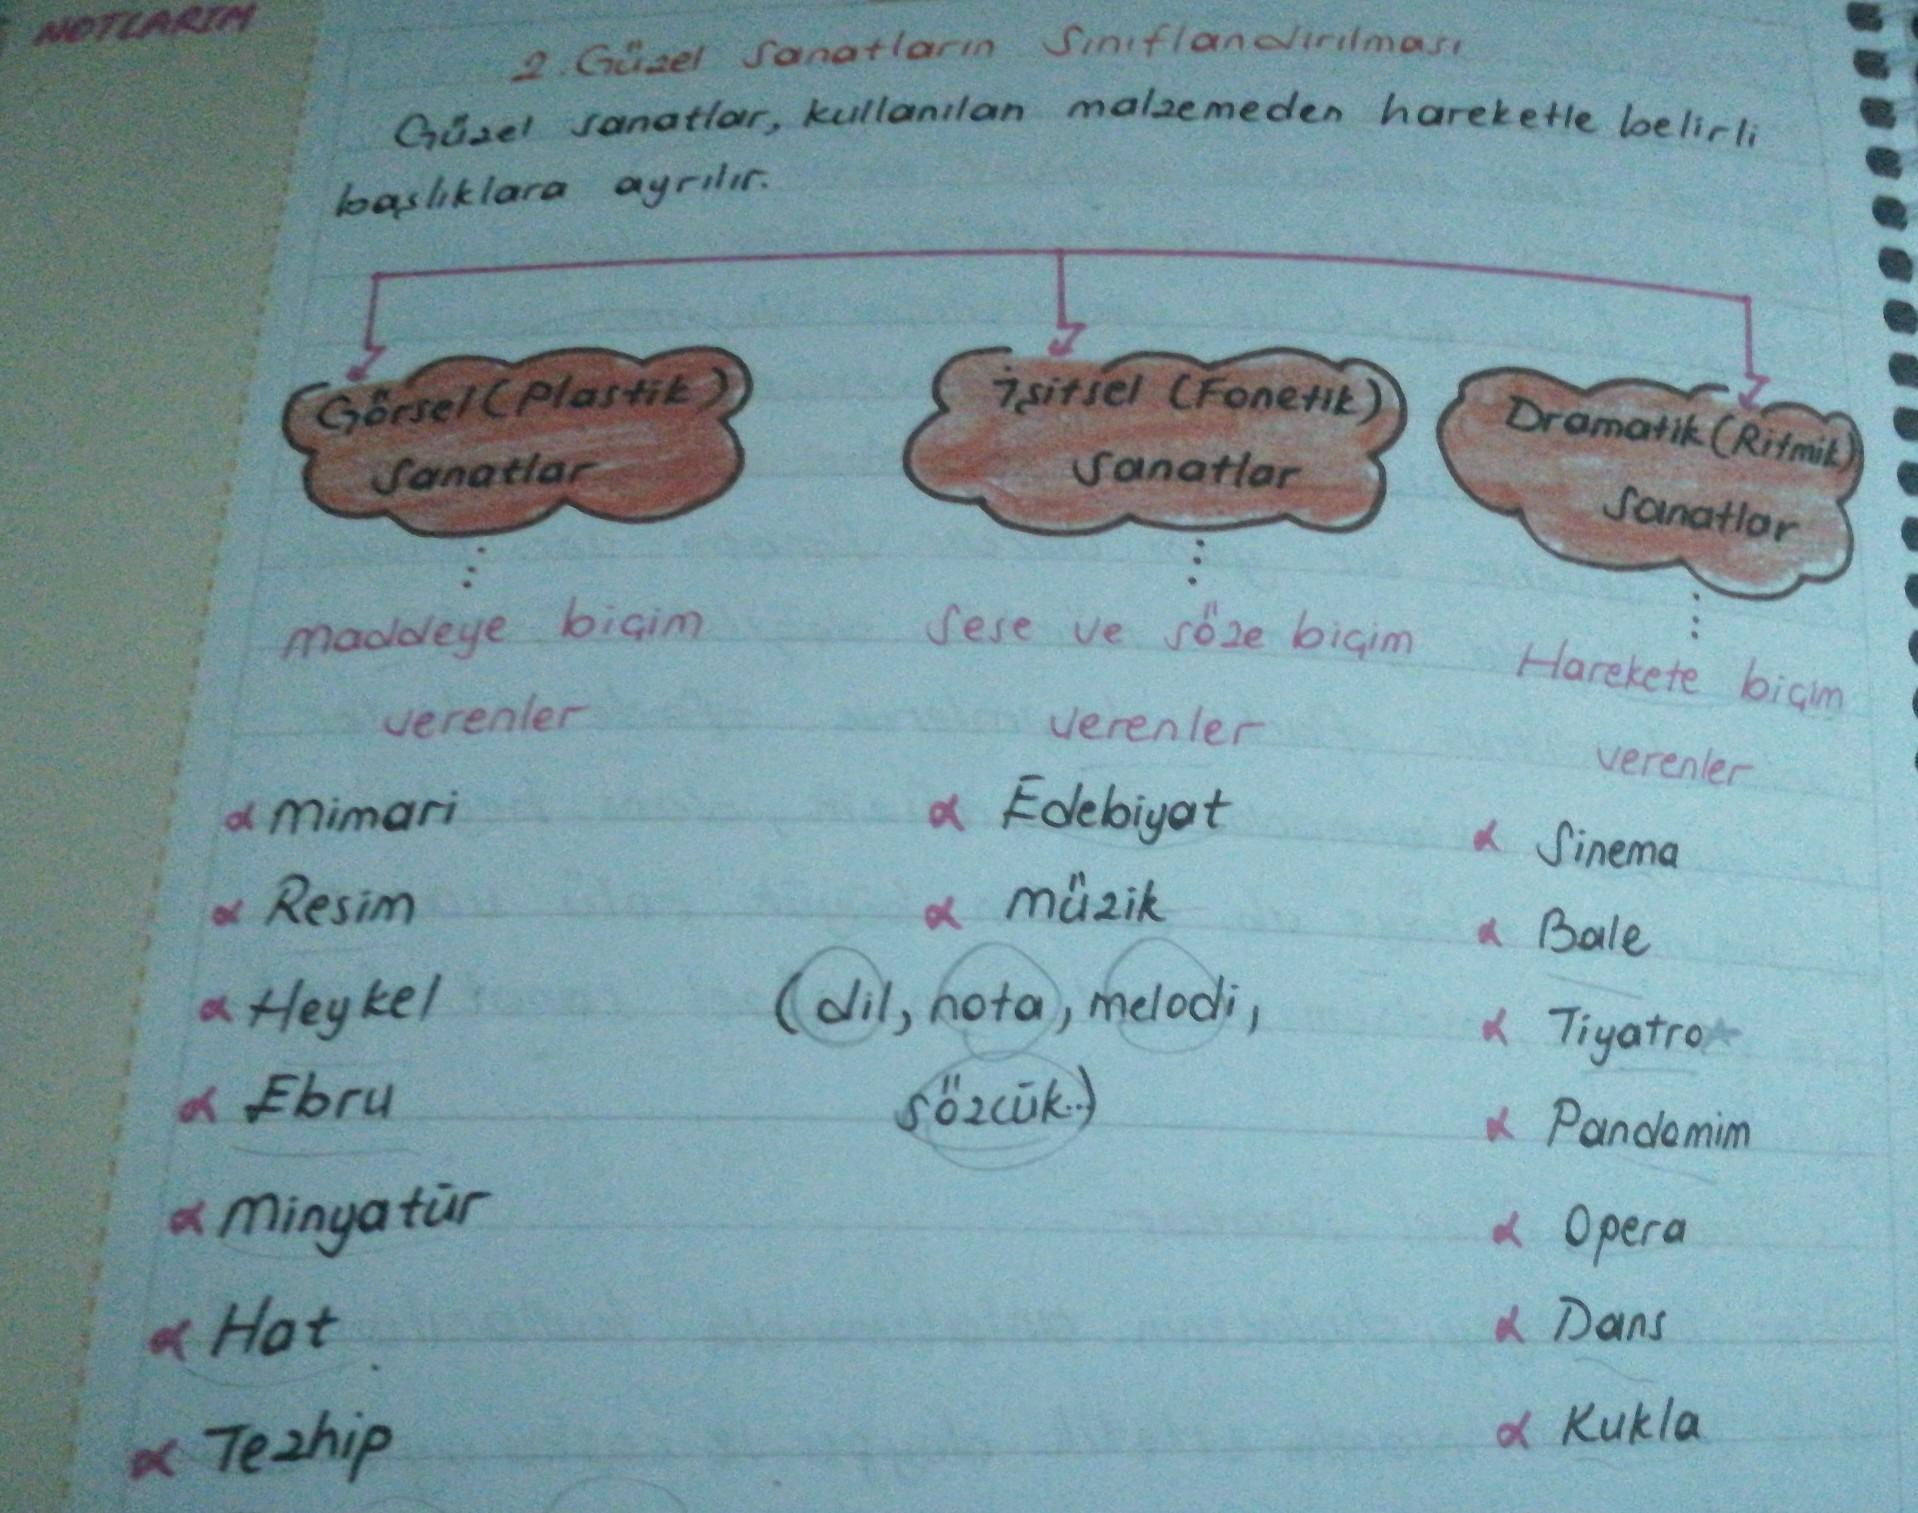 NOTLARIM
2. Güzel Sanatların Sınıflandırılması
Güzel sanatlar, kullanılan malzemeden hareketle belirli
başlıklara ayrılır.
Görsel (Plastik)
Sanatlar
İşitsel (Fonetik)
Sanatlar
Dramatik (Ritmik)
Sanatlar
Maddeye biçim
verenler
Sese ve söze biçim
verenler
Harekete biçim
verenler
Mimari
Resim
Heykel
Ebru
Minyatür
Hat
Tezhip
Edebiyat
Müzik
(dil, nota, melodi,
sözcük..)
Sinema
Bale
Tiyatro
Pandomim
Opera
Dans
Kukla